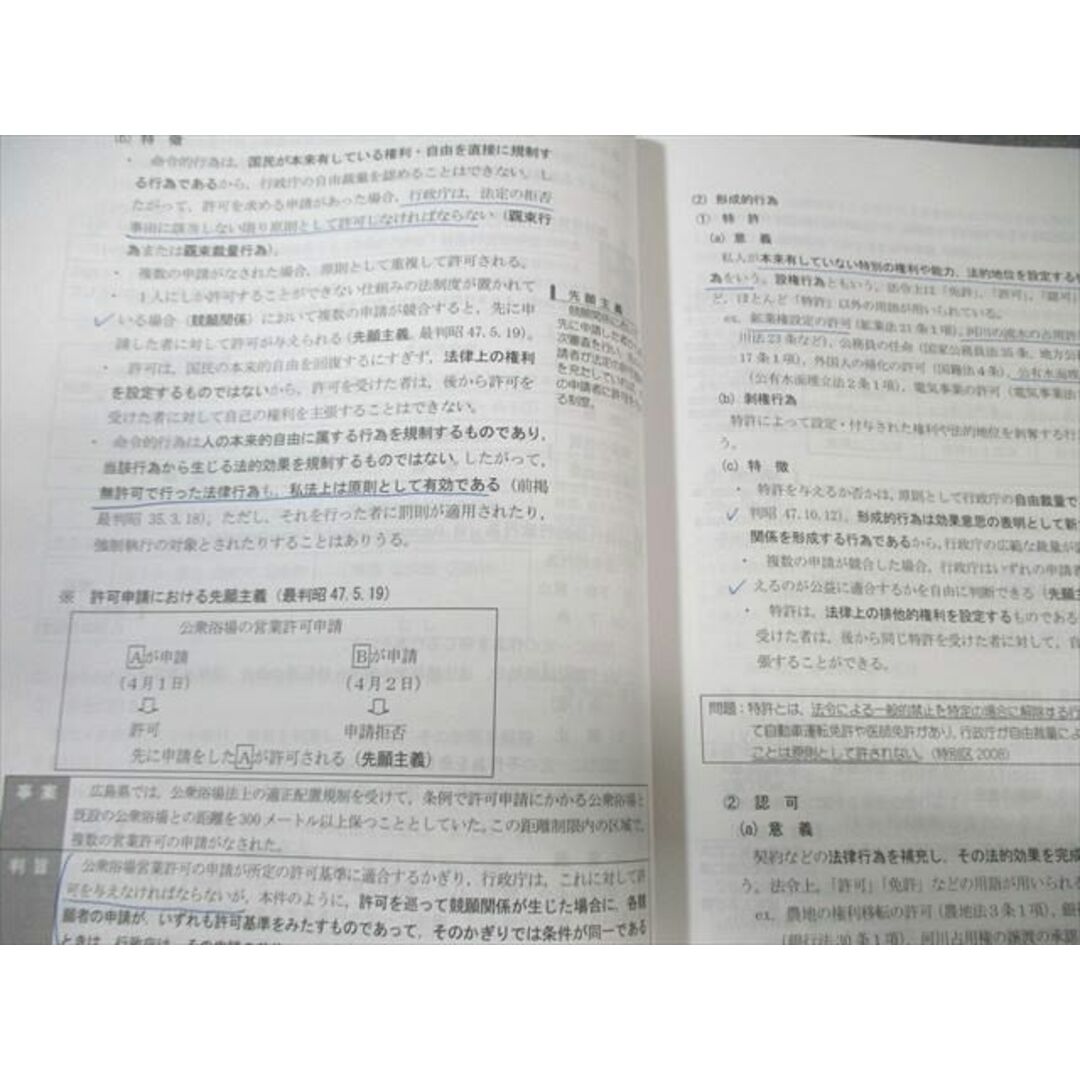 (b) 特 徴
・ 命令的行為は、国民が本来有している権利・自由を直接に規制す
る行為であるから、行政庁の自由裁量を認めることはできない。し
たがって、許可を求める申請があった場合、行政庁は、法定の拒否
事由に該当しない限り原則として許可しなければならない（覊束行
為または覊束裁量行為）。
・ 複数の申請がなされた場合、原則として重複して許可される。
・ 1人にしか許可することができない仕組みの法制度が置かれて
いる場合（競願関係）において複数の申請が競合すると、先に申
請した者に対して許可が与えられる（先願主義。最判昭47.5.19）。
・ 許可は、国民の本来的自由を回復するにすぎず、法律上の権利
を設定するものではないから、許可を受けた者は、後から許可を
受けた者に対して自己の権利を主張することはできない。
・ 命令的行為は人の本来的自由に属する行為を規制するものであり、
当該行為から生じる法的効果を規制するものではない。したがって、
無許可で行った法律行為も、私法上は原則として有効である（前掲
最判昭 35.3.18）。ただし、それを行った者に罰則が適用されたり、
強制執行の対象とされたりすることはありうる。
先願主義
競願関係において
先に申請した者から
次審査を行い
請者が法定の
を充たしていれば
の申請者に許可を
る制度。
※ 許可申請における先願主義（最判昭 47.5.19）
公衆浴場の営業許可申請
Aが申請 Bが申請
（4月1日） （4月2日）
許可 申請拒否
先に申請をしたAが許可される（先願主義）
事案
広島県では、公衆浴場法上の適正配置規制を受けて、条例で許可申請にかかる公衆浴場と
既設の公衆浴場との距離を300メートル以上保つこととしていた。この距離制限内の区域で、
複数の営業許可の申請がなされた。
判旨
公衆浴場営業許可の申請が所定の許可基準に適合するかぎり、行政庁は、これに対して許
可を与えなければならないが、本件のように、許可を巡って競願関係が生じた場合に、各競
願者の申請が、いずれも許可基準をみたすものであって、そのかぎりでは条件が同一である
ときは、行政庁は、その申請の
(2) 形成的行為
① 特 許
(a) 意 義
私人が本来有していない特別の権利や能力、法的地位を設定する行
為をいう。設権行為ともいう。法令上は「免許」、「許可」、「認可」
ど、ほとんど「特許」以外の用語が用いられている。
ex. 鉱業権設定の許可（鉱業法21条1項）、河川の流水の占用許
川法23条など）、公務員の任命（国家公務員法35条、地方公
17条1項）、外国人の帰化の許可（国籍法4条）、公有水面埋
（公有水面埋立法2条1項）、電気事業の許可（電気事業法
(b) 剥権行為
特許によって設定・付与された権利や法的地位を剥奪する行
う。
(c) 特 徴
・ 特許を与えるか否かは、原則として行政庁の自由裁量で
判昭 47.10.12）。形成的行為は効果意思の表明として新
関係を形成する行為であるから、行政庁の広範な裁量が
・ 複数の申請が競合した場合、行政庁はいずれの申請者
えるのが公益に適合するかを自由に判断できる（先願主
・ 特許は、法律上の排他的権利を設定するものである
受けた者は、後から同じ特許を受けた者に対して、自
張することができる。
問題：特許とは、法令による一般的禁止を特定の場合に解除する行
て自動車運転免許や医師免許があり、行政庁が自由裁量によ
ことは原則として許されない。（特別区 2008）
② 認 可
(a) 意 義
契約などの法律行為を補充し、その法的効果を完成
う。法令上、「許可」「免許」などの用語が用いられる
ex. 農地の権利移転の許可（農地法3条1項）、銀行
（銀行法30条1項）、河川占用権の譲渡の承認